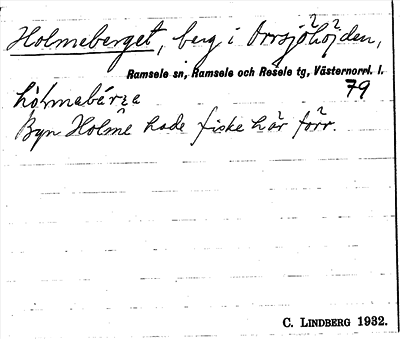 Holmeberget, berg i Orrsjöhöjden,
Ramsele sn, Ramsele och Resele tg, Västernorrl. l.
79
Byn Holme hade fiske här förr.
C. LINDBERG 1932.